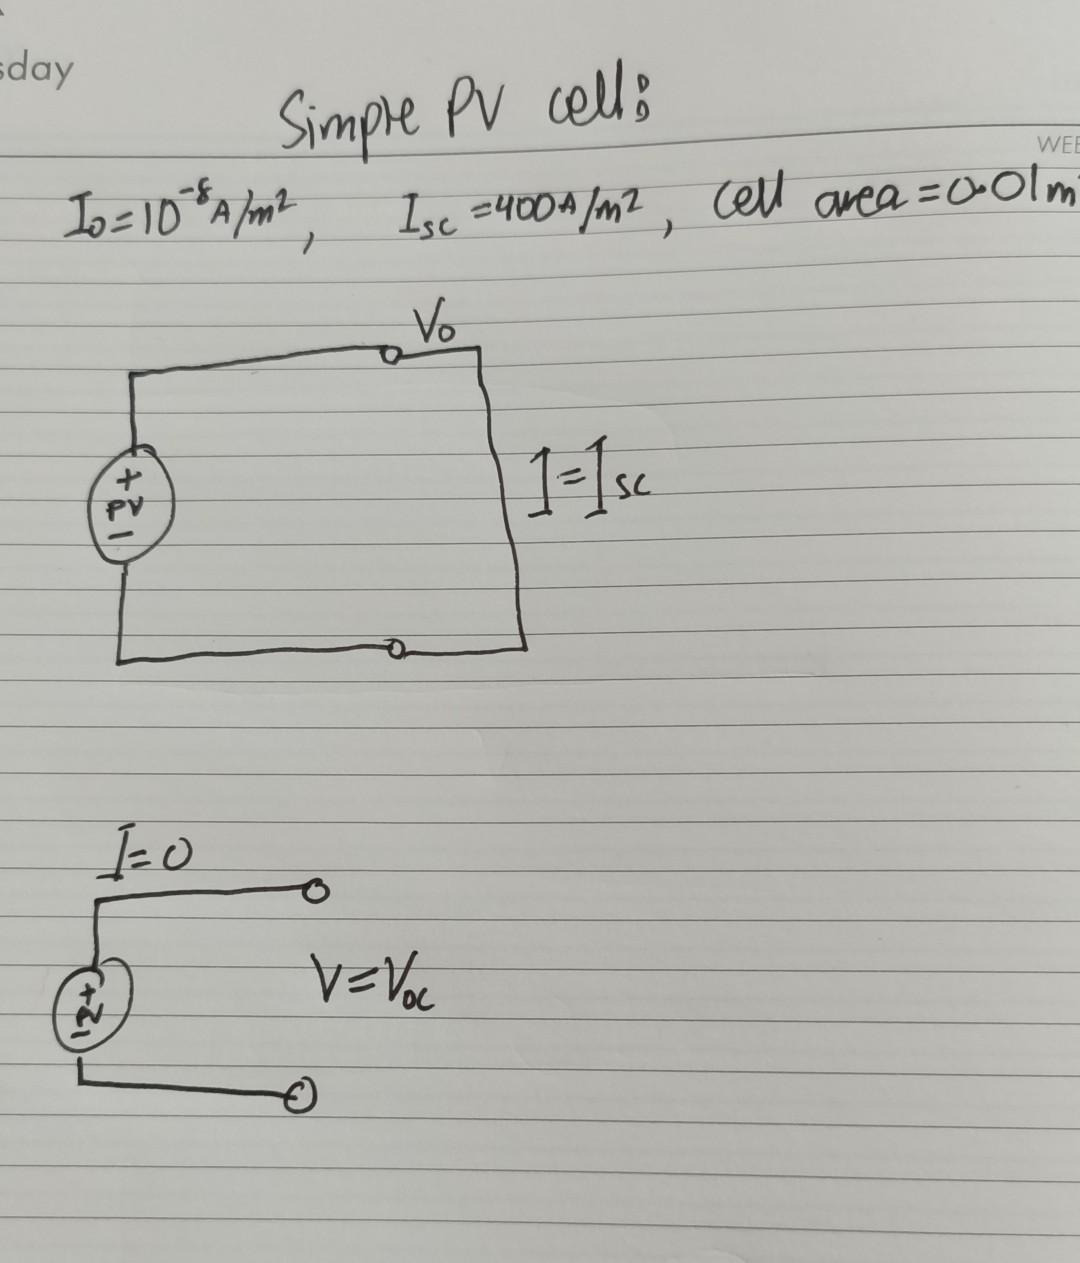 sday
Simple PV cell:
WEE
I₀=10⁻⁸A/m², Isc=400A/m², Cell area=0.01m²
V₀
+
PV
−
I=Isc
I=0
+
PV
−
V=Voc